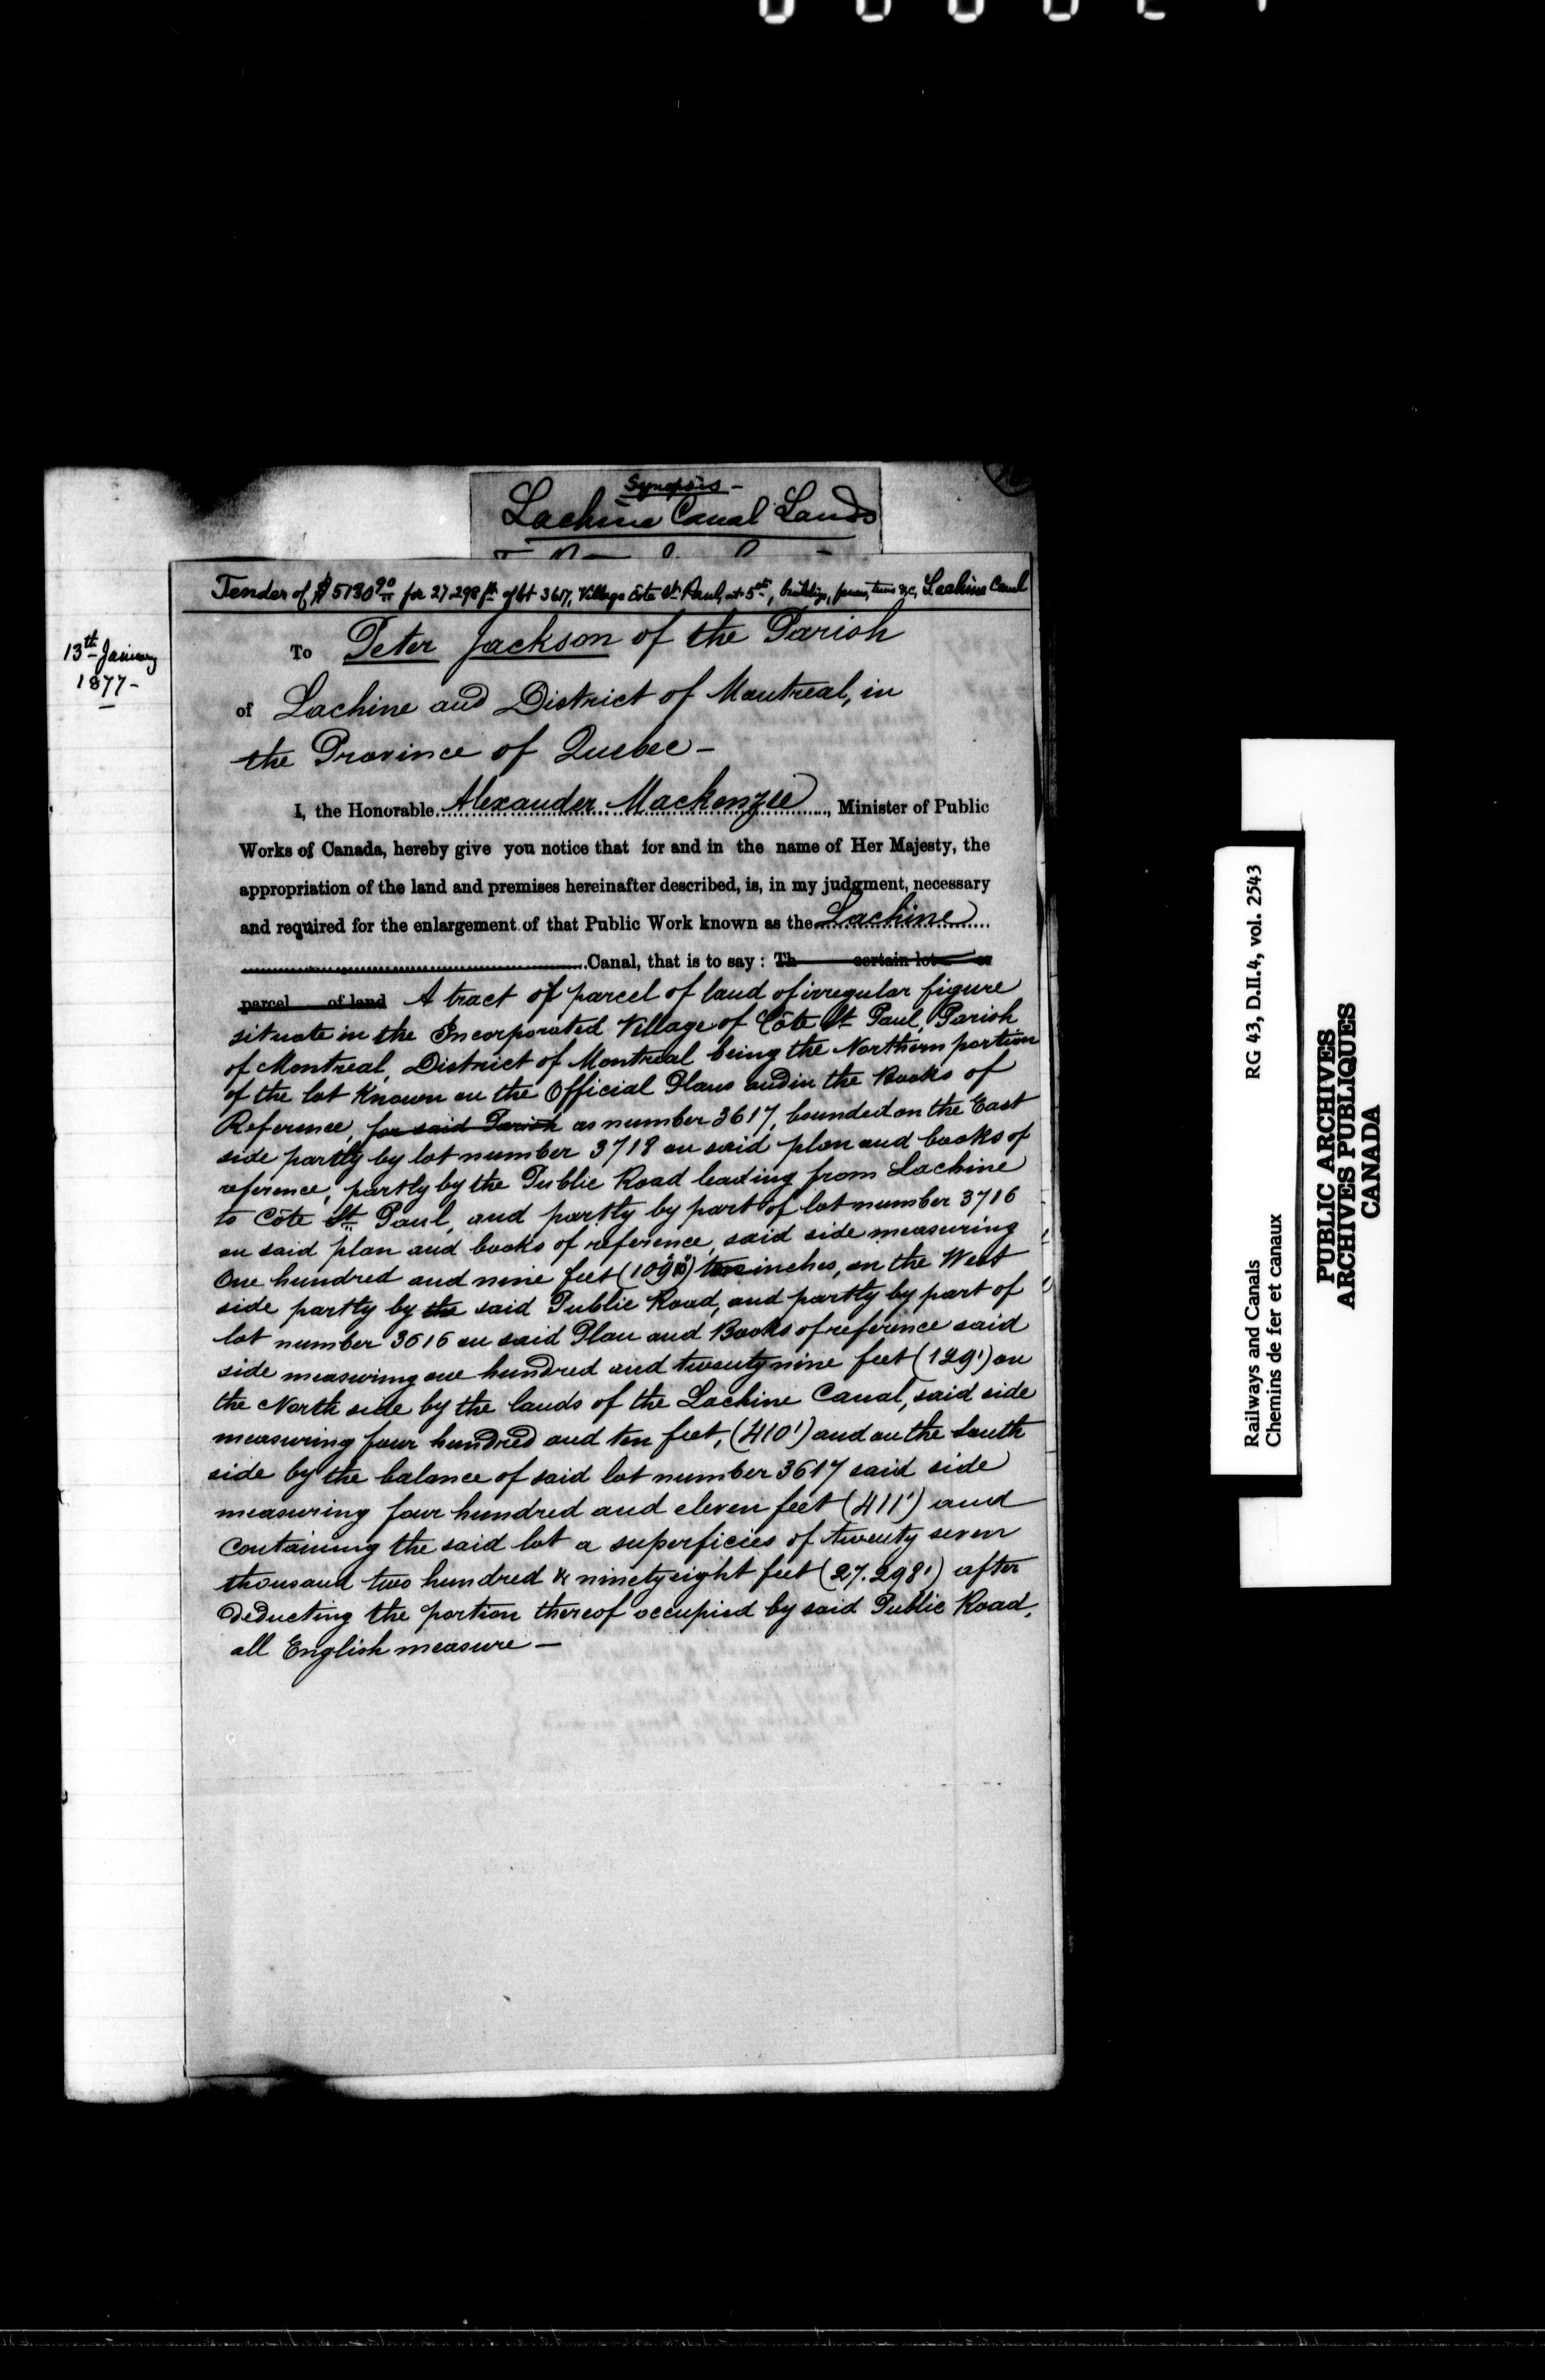 Synopsis -
Lachine Canal Lands
Tender of $5130 90 for 27.298 ft of lot 3617, Village Côte St. Paul, at 5 cts, buildings, fences, trees &c, Lachine Canal
13th January
1877-
To Peter Jackson of the Parish
of Lachine and District of Montreal, in
the Province of Quebec -
I, the Honorable Alexander Mackenzie, Minister of Public
Works of Canada, hereby give you notice that for and in the name of Her Majesty, the
appropriation of the land and premises hereinafter described, is, in my judgment, necessary
and required for the enlargement of that Public Work known as the Lachine
Canal, that is to say: Th certain lot or
parcel of land A tract of parcel of land of irregular figure
situate in the Incorporated Village of Côte St. Paul, Parish
of Montreal, District of Montreal being the Northern portion
of the lot known on the Official Plans and in the Books of
Reference, for said Parish as number 3617, bounded on the East
side partly by lot number 3718 on said plan and books of
reference, partly by the Public Road leading from Lachine
to Côte St. Paul, and partly by part of lot number 3716
on said plan and books of reference, said side measuring
One hundred and nine feet (109'10") ten inches, on the West
side partly by the said Public Road, and partly by part of
lot number 3616 on said Plan and Books of reference said
side measuring one hundred and twenty nine feet (129') on
the North side by the lands of the Lachine Canal, said side
measuring four hundred and ten feet, (410') and on the South
side by the balance of said lot number 3617 said side
measuring four hundred and eleven feet (411') and
containing the said lot a superficies of twenty seven
thousand two hundred & ninety eight feet (27.298') after
deducting the portion thereof occupied by said Public Road,
all English measure -
Railways and Canals RG 43, D.II.4, vol. 2543
Chemins de fer et canaux
PUBLIC ARCHIVES
ARCHIVES PUBLIQUES
CANADA